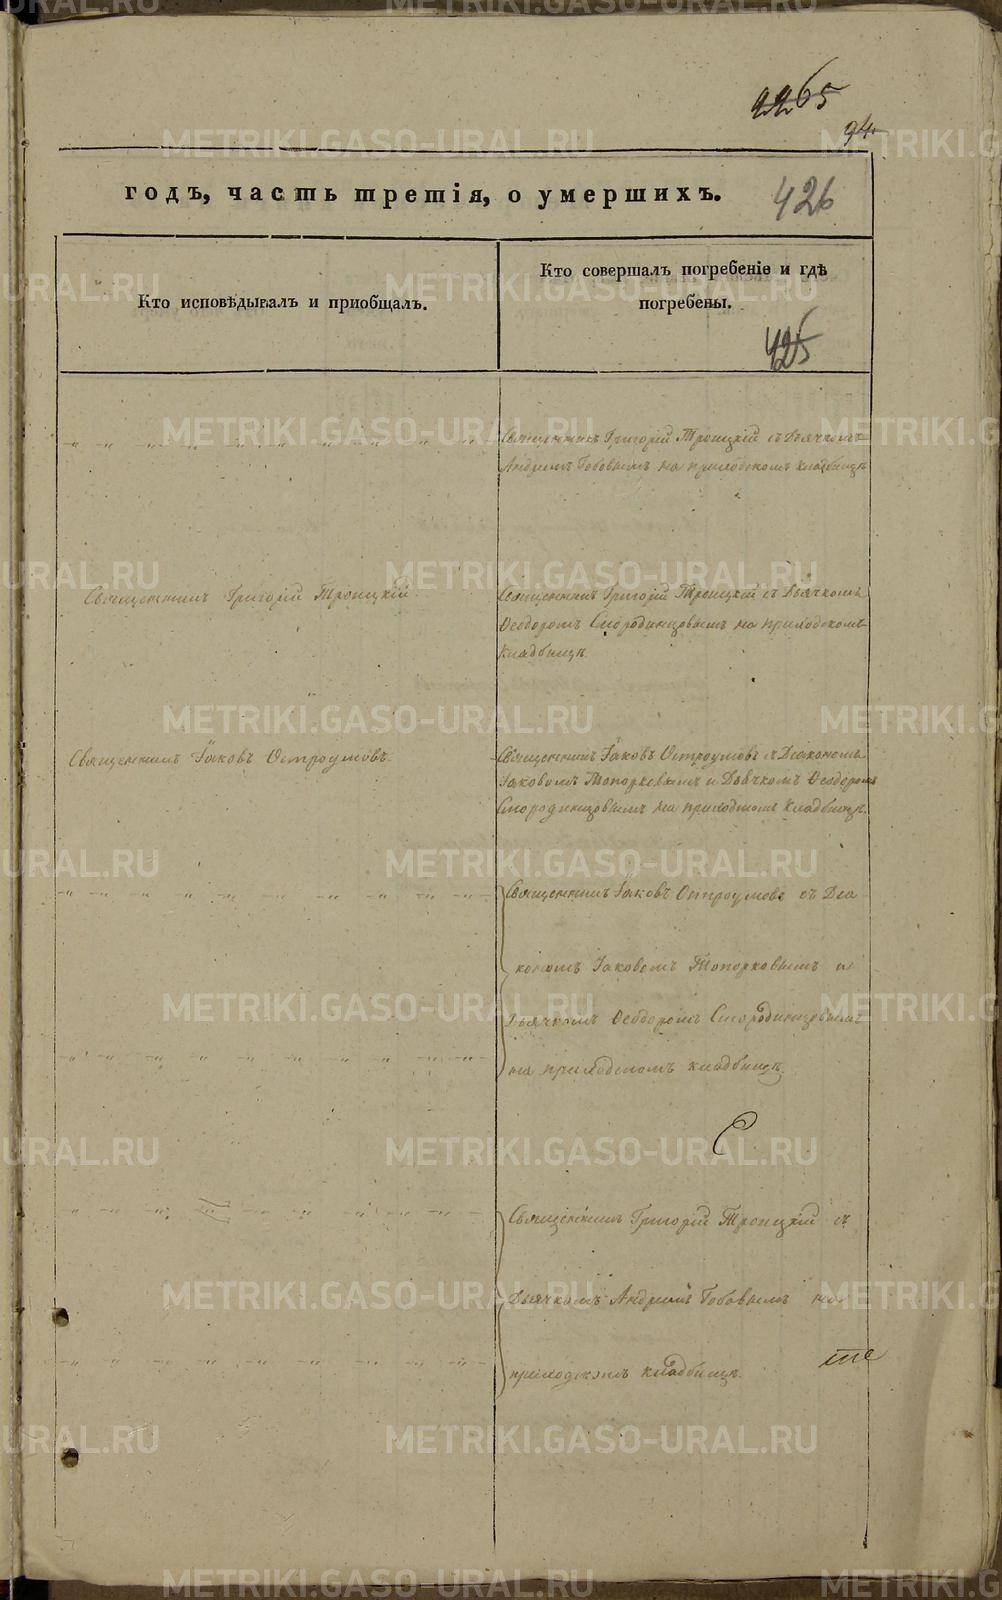 2265
94.
годъ, часть третія, о умершихъ.
426
Кто исповѣдывалъ и приобщалъ.
Кто совершалъ погребеніе и гдѣ
погребены.
425
Священникъ Григорій Троицкій съ Дьячкомъ
Андреемъ Бобовымъ на приходскомъ кладбищѣ
Священникъ Григорій Троицкій
Священникъ Григорій Троицкій съ Дьячкомъ
Ѳеодоромъ Смородинцовымъ на приходскомъ
кладбищѣ.
Священникъ Іаковъ Остроумовъ
Священникъ Іаковъ Остроумовъ съ Діакономъ
Іаковомъ Топорковымъ и Дьячкомъ Ѳеодоромъ
Смородинцовымъ на приходскомъ кладбищѣ.
Священникъ Іаковъ Остроумовъ съ Діа
кономъ Іаковомъ Топорковымъ и
Дьячкомъ Ѳеодоромъ Смородинцовымъ
на приходскомъ кладбищѣ.
Священникъ Григорій Троицкій съ
Дьячкомъ Андреемъ Бобовымъ на
приходскомъ кладбищѣ.
METRIKI.GASO-URAL.RU